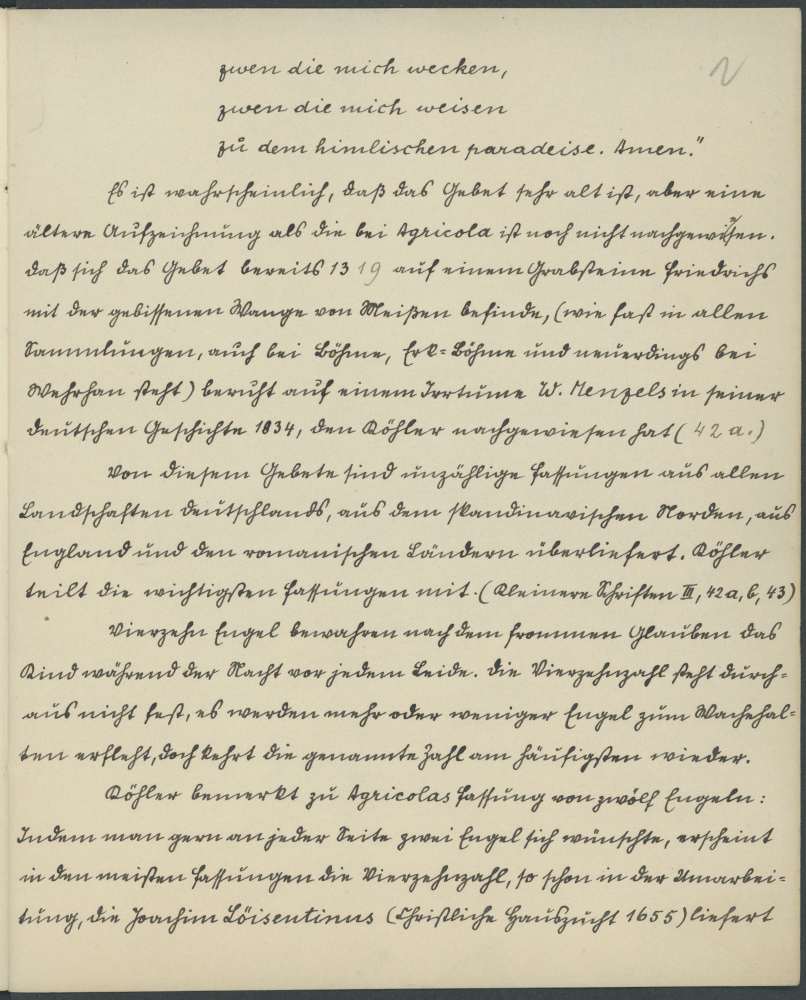 2
zwen die mich wecken,
zwen die mich weisen
zů dem himlischen paradeise. Amen."
Es ist wahrscheinlich, daß das Gebet sehr alt ist, aber eine
ältere Aufzeichnung als die bei Agricola ist noch nicht nachgewiesen.
Daß sich das Gebet bereits 1319 auf einem Grabsteine Friedrichs
mit der gebissenen Wange von Meißen befinde, (wie fast in allen
Sammlungen, auch bei Böhme, Erk=Böhme und neuerdings bei
Wehrhan steht) beruht auf einem Irrtume W. Menzels in seiner
Deutschen Geschichte 1834, den Köhler nachgewiesen hat (42a.)
Von diesem Gebete sind unzählige Fassungen aus allen
Landschaften Deutschlands, aus dem skandinavischen Norden, aus
England und den romanischen Ländern überliefert. Köhler
teilt die wichtigsten Fassungen mit. (Kleinere Schriften III, 42a, b, 43)
Vierzehn Engel bewahren nach dem frommen Glauben das
Kind während der Nacht vor jedem Leide. Die Vierzehnzahl steht durch=
aus nicht fest, es werden mehr oder weniger Engel zum Wachehal=
ten erfleht, doch kehrt die genannte Zahl am häufigsten wieder.
Köhler bemerkt zu Agricolas Fassung von zwölf Engeln:
Indem man gern an jeder Seite zwei Engel sich wünschte, erscheint
in den meisten Fassungen die Vierzehnzahl, so schon in der Umarbei=
tung, die Joachim Löisentinus (Christliche Hauszucht 1655) liefert